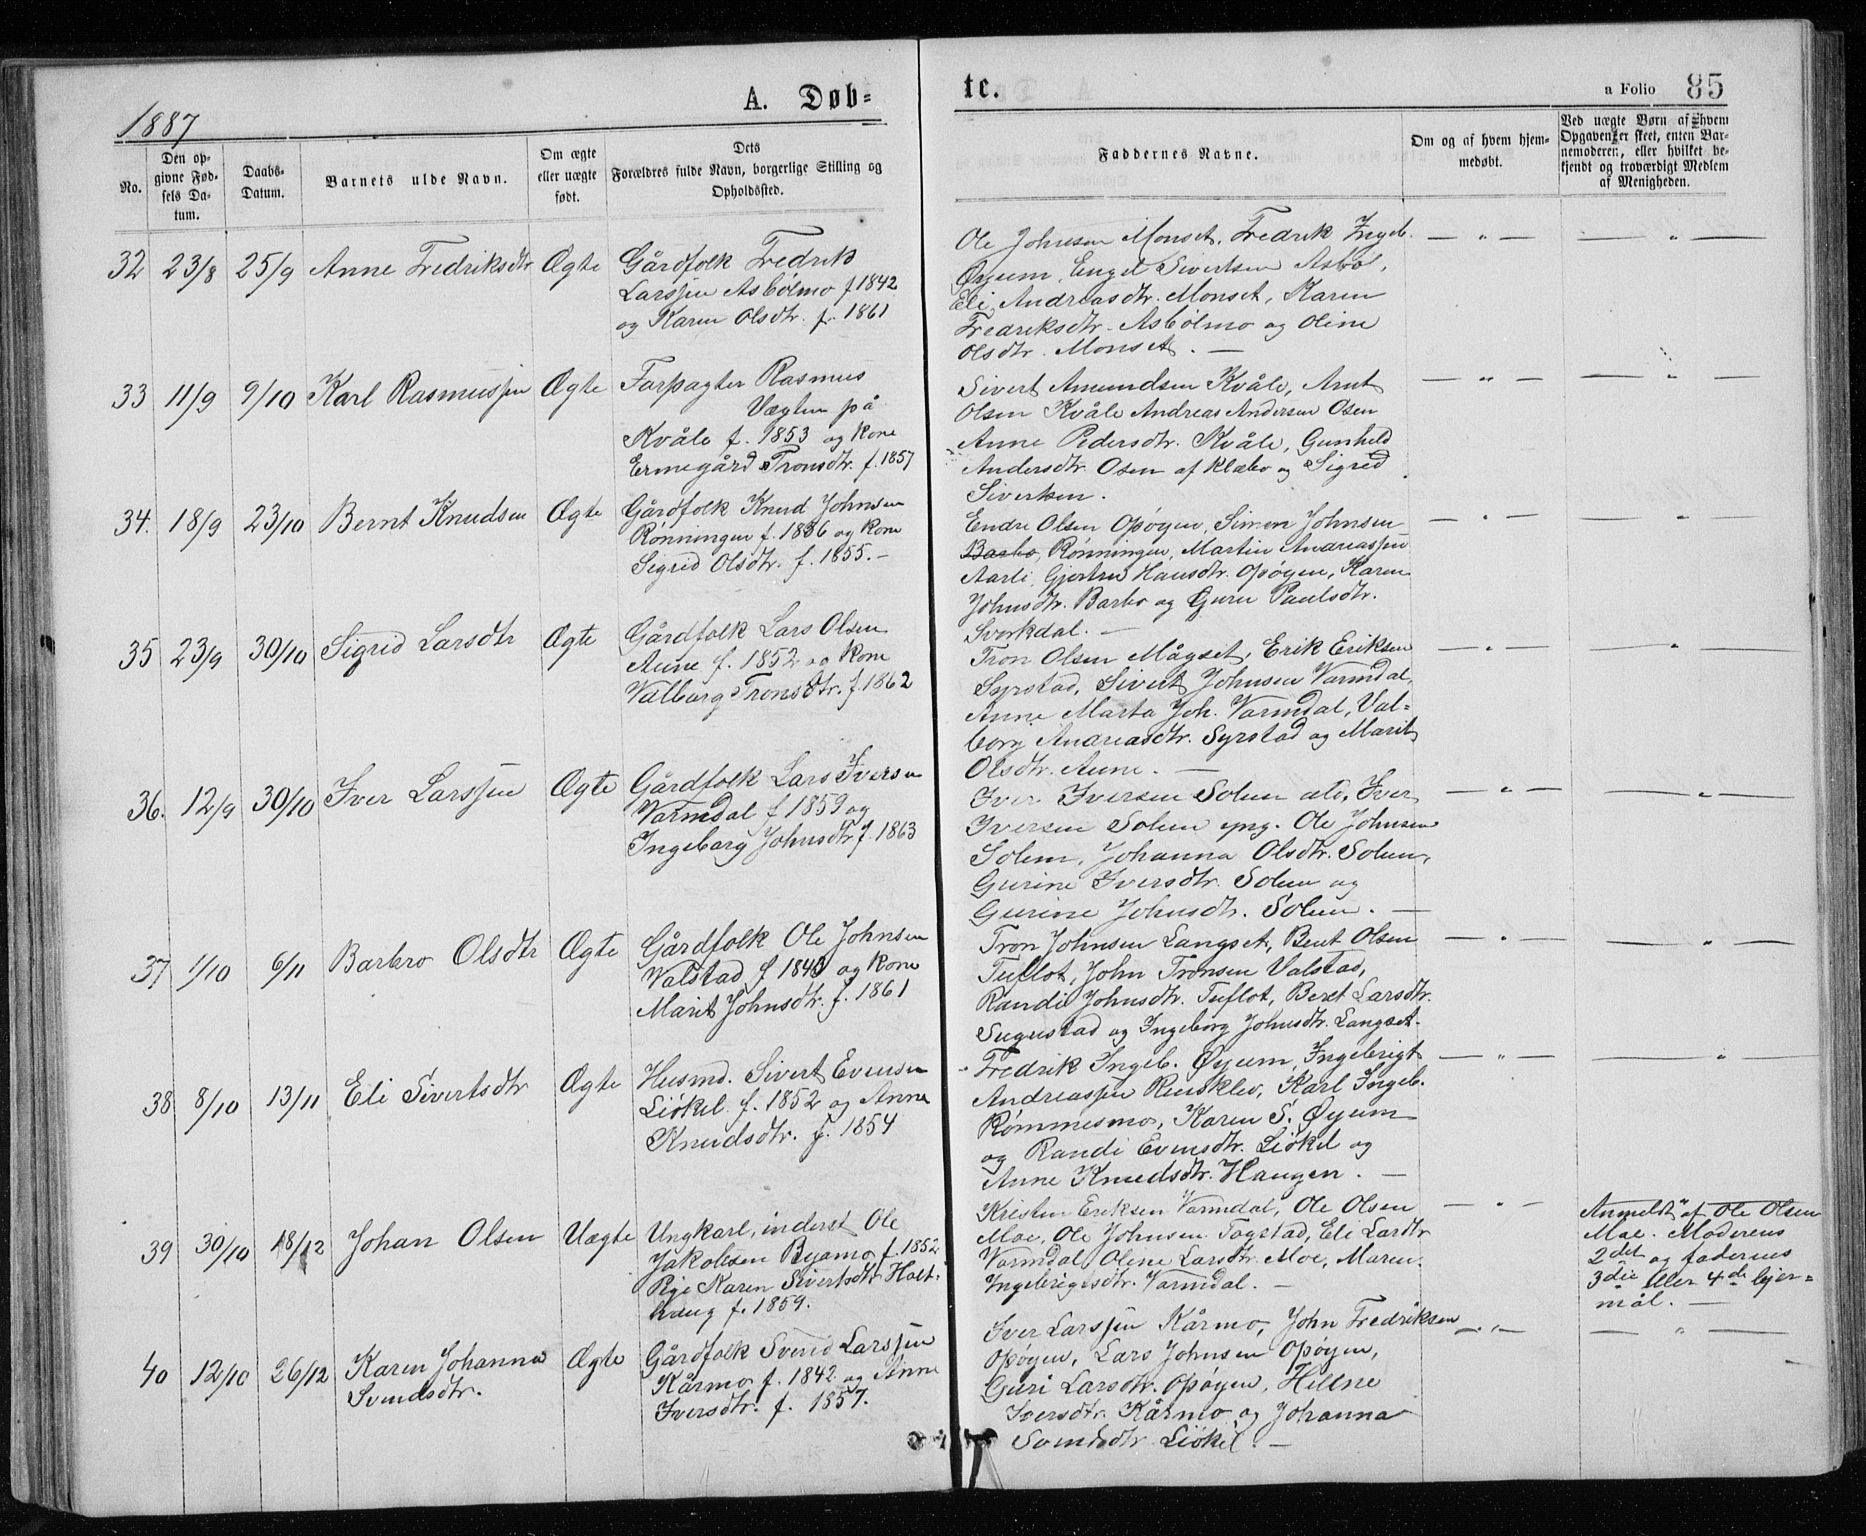 1887
A. Døb-
te.
a Folio 85
No.
Den opgivne Fødsels Datum.
Daabs-Datum.
Barnets ulde Navn.
Om ægte eller uægte født.
Dets Forældres fulde Navn, borgerlige Stilling og Opholdssted.
Faddernes Navne.
Om og af hvem hjemmedøbt.
Ved uægte Børn af hvem Opgaven er skeet, enten Barnemoderen, eller hvilket bekjendt og troværdigt Medlem af Menigheden.
32 23/8 25/9 Anne Fredriksdtr Ægte Gårdfolk Fredrik
Larssen Asbølmo f 1842
og Karen Olsdtr. f. 1861
Ole Johnsen Monset, Fredrik Ingeb.
Øyum, Engel Sivertsen Asbøl,
Eli Andreasdtr. Monset, Karen
Fredriksdtr. Asbølmo og Oline
Olsdtr. Monset. —
33 11/9 9/10 Karl Rasmussen Ægte Forpagter Rasmus
Vægten på
Kvåle f. 1853 og Kone
Ermegård Tronsdtr. f. 1857
Sivert Amundsen Kvåle, Arnt
Olsen Kvåle Andreas Andersen Osen
Anne Pedersdtr. Kvåle, Gunhild
Andersdtr. Osen af Klæbo og Sigrid
Sivertsen.
34. 18/9 23/10 Bernt Knudsen Ægte Gårdfolk Knud Johnsen
Rønningen f. 1836 og Kone
Sigrid Olsdtr. f. 1855. —
Endre Olsen Opøyen, Simen Johnsen
Barbo, Rønningen, Martin Andreassen
Aarli, Gjertru Hansdtr. Opøyen, Karen
Johnsdtr. Barbo og Guru Paulsdtr.
Svorkdal. —
35 23/9 30/10 Sigrid Larsdtr Ægte Gårdfolk Lars Olsen
Aune f. 1852 og Kone
Valborg Tronsdtr. f. 1862
Tron Olsen Mågset, Erik Eriksen
Syrstad, Sivert Johnsen Varmdal,
Anne Marta Joh. Varmdal, Val-
borg Andreasdtr. Syrstad og Marit
Olsdtr. Aune. —
36. 12/9 30/10 Iver Larssen Ægte Gårdfolk Lars Iversen
Varmdal f 1859 og
Ingeborg Johnsdtr f. 1863
Iver Iversen Solem ald, Iver
Iversen Solem yng. Ole Johnsen
Solem, Johanna Olsdtr. Solem,
Gurine Iversdtr. Solem og
Gurine Johnsdtr. Solem. —
37 1/10 6/11 Barbro Olsdtr Ægte Gårdfolk Ole Johnsen
Valstad f 1840 og Kone
Marit Johnsdtr. f. 1861
Tron Johnsen Langset, Bent Olsen
Tuflot, John Tronsen Valstad,
Randi Johnsdtr. Tuflot, Beret Larsdtr.
Sugustad og Ingeborg Johnsdtr. Langset.
38 8/10 13/11 Eli Sivertsdtr Ægte Husmd. Sivert Evensen
Liøkel f. 1852 og Anne
Knudsdtr. f. 1854
Fredrik Ingeb. Øyum, Ingebrigt
Andreassen Rinsklev, Karl Ingeb.
Rømmesmo, Karen S. Øyum
og Randi Evensdtr. Liøkel og
Anne Knudsdtr. Haugen. —
39 30/10 18/12 Johan Olsen Uægte Ungkarl, inderst Ole
Jakobsen Byamo f. 1852
Pige Karen Sivertsdtr Holt-
haug f. 1859.
Kristen Eriksen Varmdal, Ole Olsen
Moe, Ole Johnsen Togstad, Eli Larsdtr
Varmdal Olene Larsdtr. Moe, Maren
Ingebrigtsdtr. Varmdal. —
Anmeldt af Ole Olsen
Moe. Moderens
2det og faderens
3die eller 4de lejer-
mål. —
40 12/10 26/12 Karen Johanna
Svendsdtr.
Ægte Gårdfolk Svend Larssen
Kårmo f. 1842 og Anne
Iversdtr. f. 1857.
Iver Larssen Kårmo, John Fredriksen
Opøyen, Lars Johnsen Opøyen,
Guri Larsdtr. Opøyen, Hellne
Iversdtr. Kårmo og Johanna
Svendsdtr. Liøkel. —